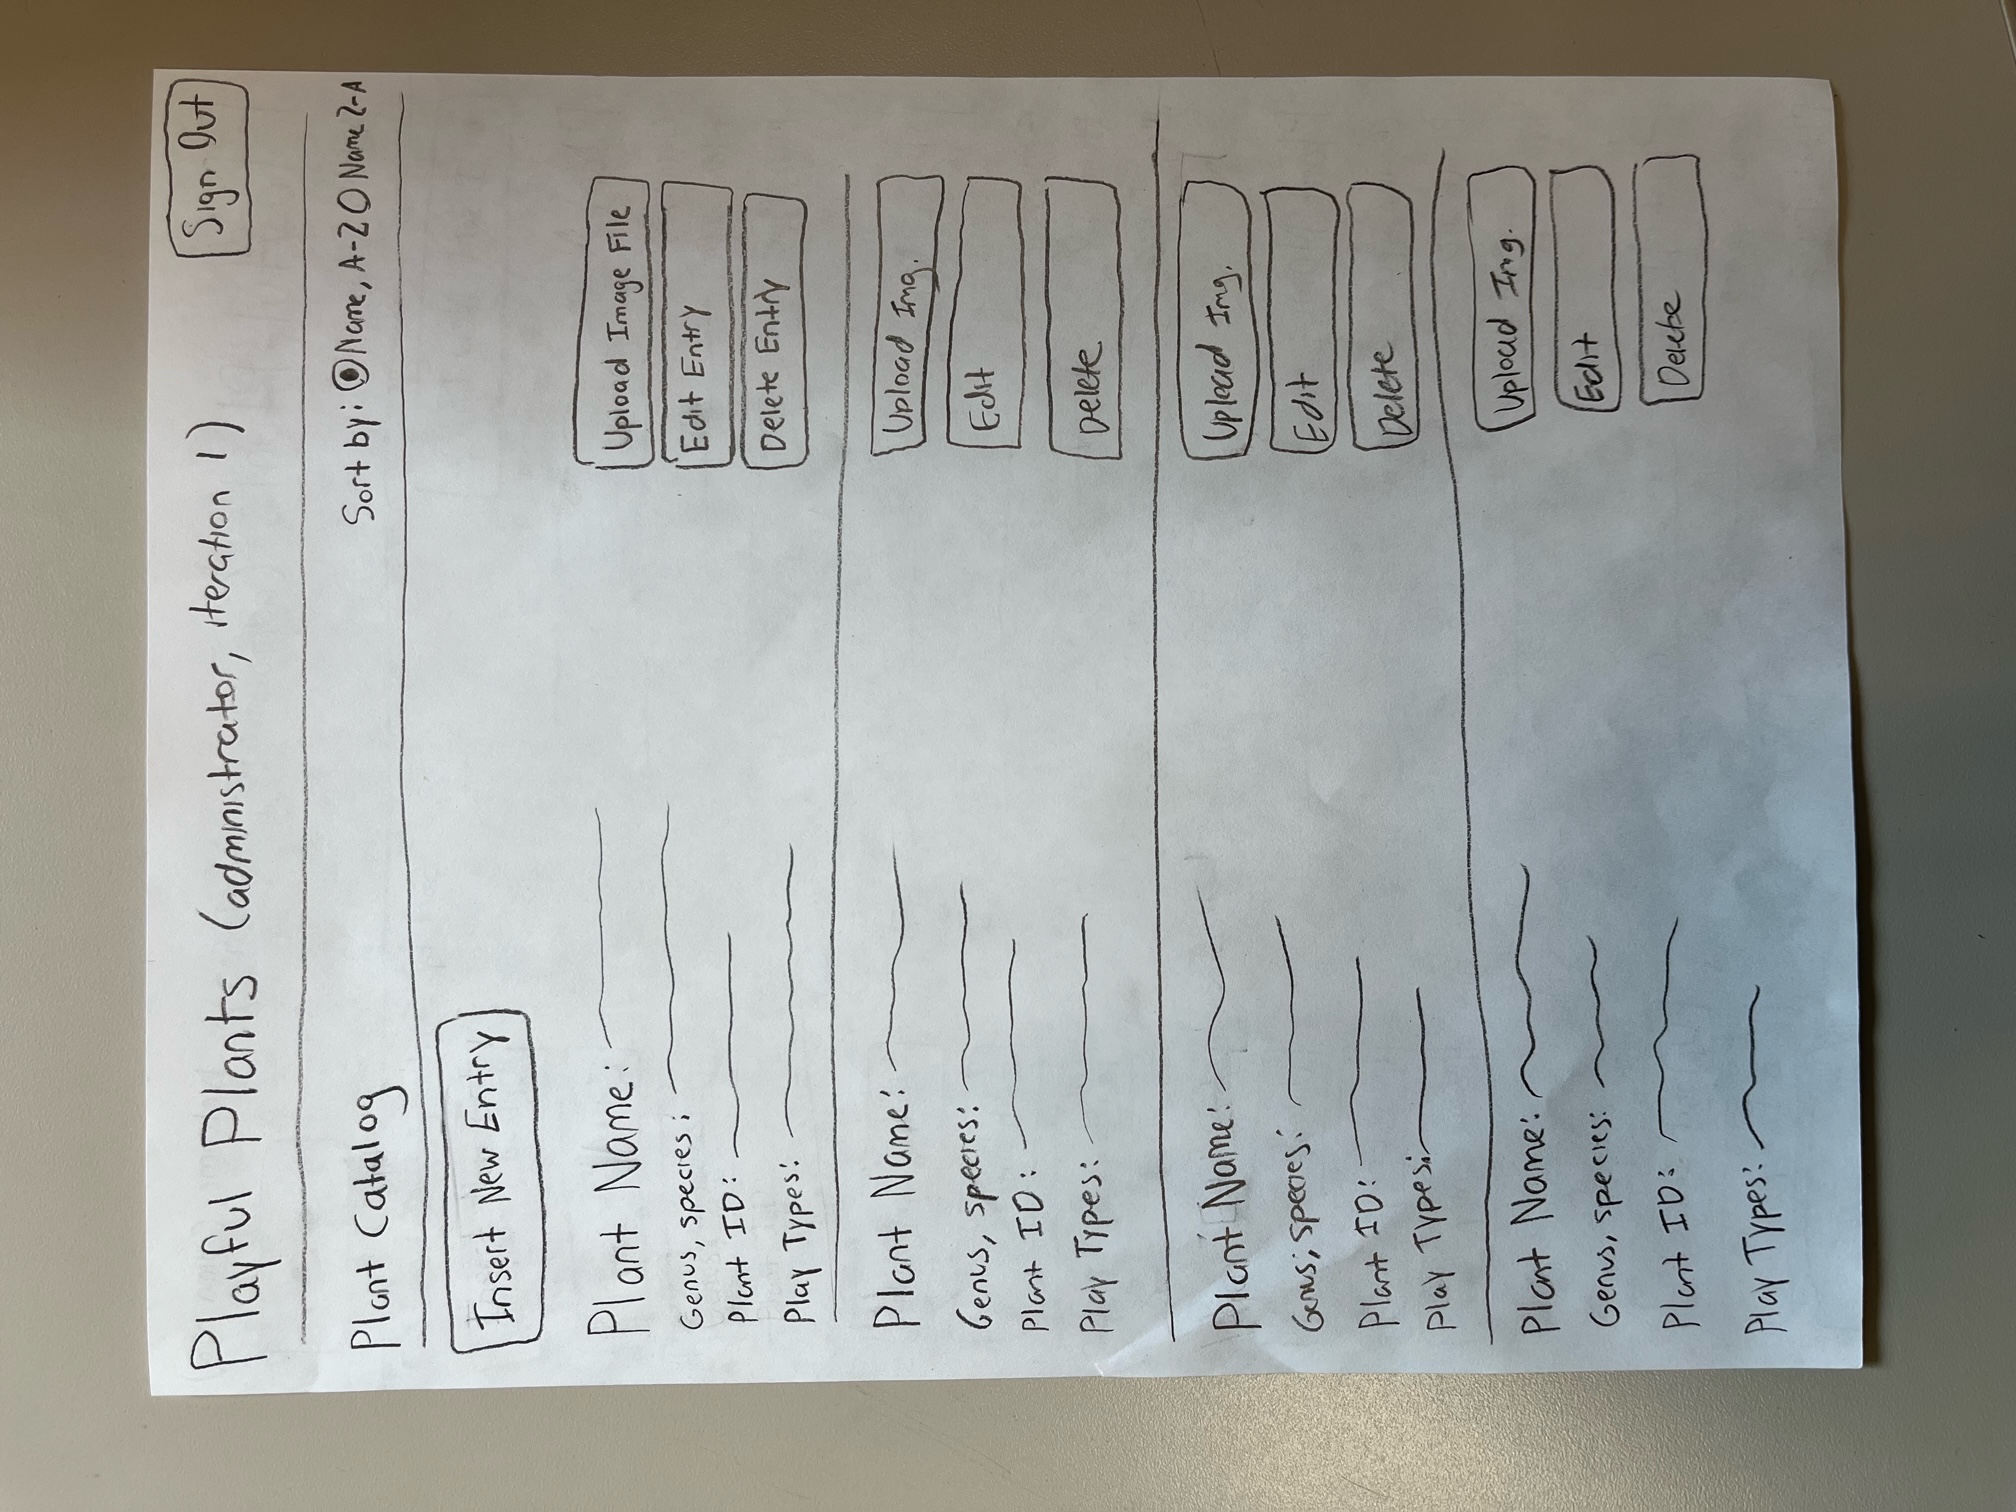 Playful Plants (administrator, iteration 1)
Sign Out
Plant Catalog
Sort by: Name, A-Z Name Z-A
Insert New Entry
Plant Name:
Genus, species:
Plant ID:
Play Types:
Upload Image File
Edit Entry
Delete Entry
Plant Name:
Genus, species:
Plant ID:
Play Types:
Upload Img.
Edit
Delete
Plant Name:
Genus, species:
Plant ID:
Play Types:
Upload Img.
Edit
Delete
Plant Name:
Genus, species:
Plant ID:
Play Types:
Upload Img.
Edit
Delete